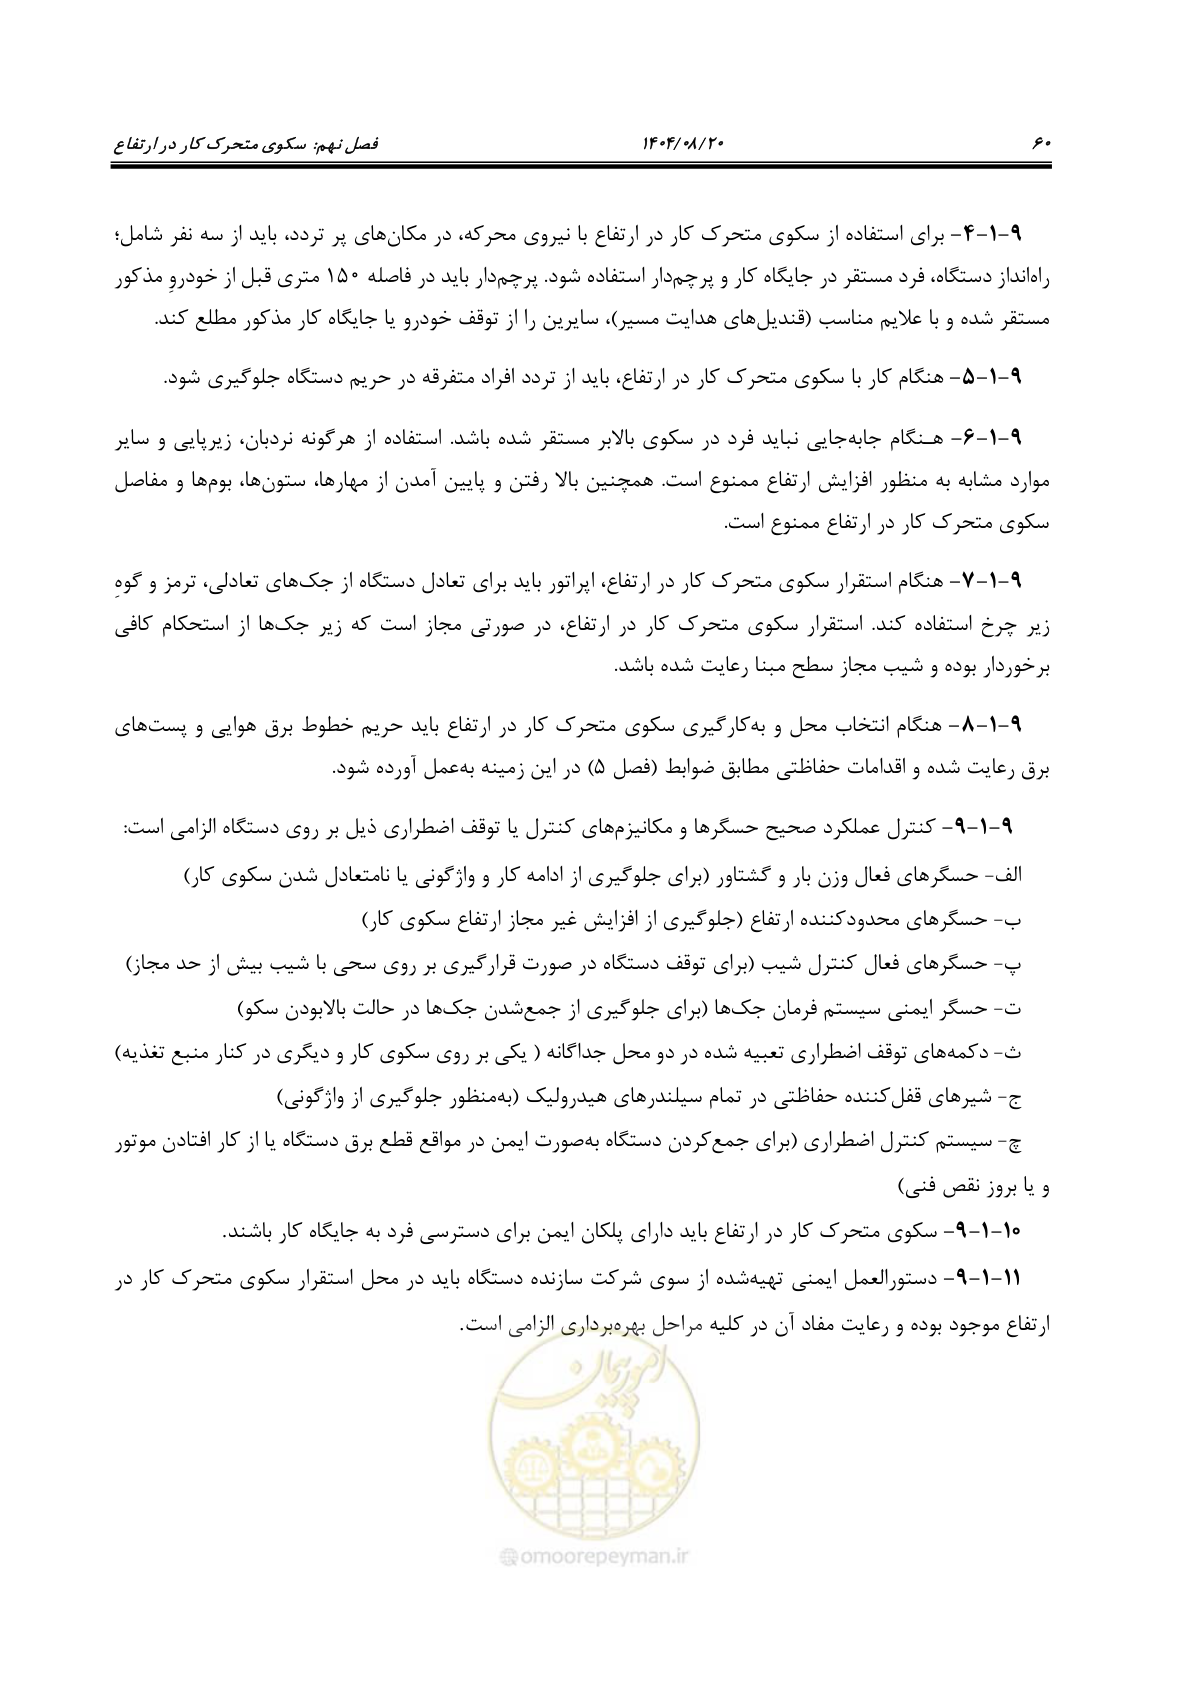 ۶۰
۱۴۰۴/۰۸/۲۰
فصل نهم: سکوی متحرک کار در ارتفاع
۹-۱-۴- برای استفاده از سکوی متحرک کار در ارتفاع با نیروی محرکه، در مکان‌های پر تردد، باید از سه نفر شامل؛
راه‌انداز دستگاه، فرد مستقر در جایگاه کار و پرچم‌دار استفاده شود. پرچم‌دار باید در فاصله ۱۵۰ متری قبل از خودروِ مذکور
مستقر شده و با علایم مناسب (قندیل‌های هدایت مسیر)، سایرین را از توقف خودرو یا جایگاه کار مذکور مطلع کند.
۹-۱-۵- هنگام کار با سکوی متحرک کار در ارتفاع، باید از تردد افراد متفرقه در حریم دستگاه جلوگیری شود.
۹-۱-۶- هـنگام جابه‌جایی نباید فرد در سکوی بالابر مستقر شده باشد. استفاده از هرگونه نردبان، زیرپایی و سایر
موارد مشابه به منظور افزایش ارتفاع ممنوع است. همچنین بالا رفتن و پایین آمدن از مهارها، ستون‌ها، بوم‌ها و مفاصل
سکوی متحرک کار در ارتفاع ممنوع است.
۹-۱-۷- هنگام استقرار سکوی متحرک کار در ارتفاع، اپراتور باید برای تعادل دستگاه از جک‌های تعادلی، ترمز و گوهِ
زیر چرخ استفاده کند. استقرار سکوی متحرک کار در ارتفاع، در صورتی مجاز است که زیر جک‌ها از استحکام کافی
برخوردار بوده و شیب مجاز سطح مبنا رعایت شده باشد.
۹-۱-۸- هنگام انتخاب محل و به‌کارگیری سکوی متحرک کار در ارتفاع باید حریم خطوط برق هوایی و پست‌های
برق رعایت شده و اقدامات حفاظتی مطابق ضوابط (فصل ۵) در این زمینه به‌عمل آورده شود.
۹-۱-۹- کنترل عملکرد صحیح حسگرها و مکانیزم‌های کنترل یا توقف اضطراری ذیل بر روی دستگاه الزامی است:
الف- حسگرهای فعال وزن بار و گشتاور (برای جلوگیری از ادامه کار و واژگونی یا نامتعادل شدن سکوی کار)
ب- حسگرهای محدودکننده ارتفاع (جلوگیری از افزایش غیر مجاز ارتفاع سکوی کار)
پ- حسگرهای فعال کنترل شیب (برای توقف دستگاه در صورت قرارگیری بر روی سحی با شیب بیش از حد مجاز)
ت- حسگر ایمنی سیستم فرمان جک‌ها (برای جلوگیری از جمع‌شدن جک‌ها در حالت بالابودن سکو)
ث- دکمه‌های توقف اضطراری تعبیه شده در دو محل جداگانه ( یکی بر روی سکوی کار و دیگری در کنار منبع تغذیه)
ج- شیرهای قفل‌کننده حفاظتی در تمام سیلندرهای هیدرولیک (به‌منظور جلوگیری از واژگونی)
چ- سیستم کنترل اضطراری (برای جمع‌کردن دستگاه به‌صورت ایمن در مواقع قطع برق دستگاه یا از کار افتادن موتور
و یا بروز نقص فنی)
۹-۱-۱۰- سکوی متحرک کار در ارتفاع باید دارای پلکان ایمن برای دسترسی فرد به جایگاه کار باشند.
۹-۱-۱۱- دستورالعمل ایمنی تهیه‌شده از سوی شرکت سازنده دستگاه باید در محل استقرار سکوی متحرک کار در
ارتفاع موجود بوده و رعایت مفاد آن در کلیه مراحل بهره‌برداری الزامی است.
امور پیمان
@omoorepeyman.ir